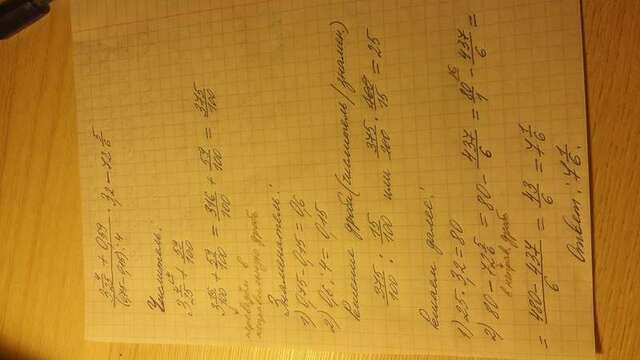 (3 4/25 + 0,59) / ((0,75 - 0,15) : 4) · 3,2 - 72 5/6
Числитель:
3 4/25 + 59/100
3 16/100 + 59/100 = 316/100 + 59/100 = 375/100
переводим в
неправильную дробь
Знаменатель:
1) 0,75 - 0,15 = 0,6
2) 0,6 : 4 = 0,15
решение дроби (числитель / знамен)
375/100 : 15/100 или 375/100 · 100/15 = 25
решаем далее:
1) 25 · 3,2 = 80
2) 80 - 72 5/6 = 80 - 437/6 = 80/1 - 437/6 =
в неправ. дробь
= (480 - 437)/6 = 43/6 = 7 1/6
Ответ: 7 1/6.